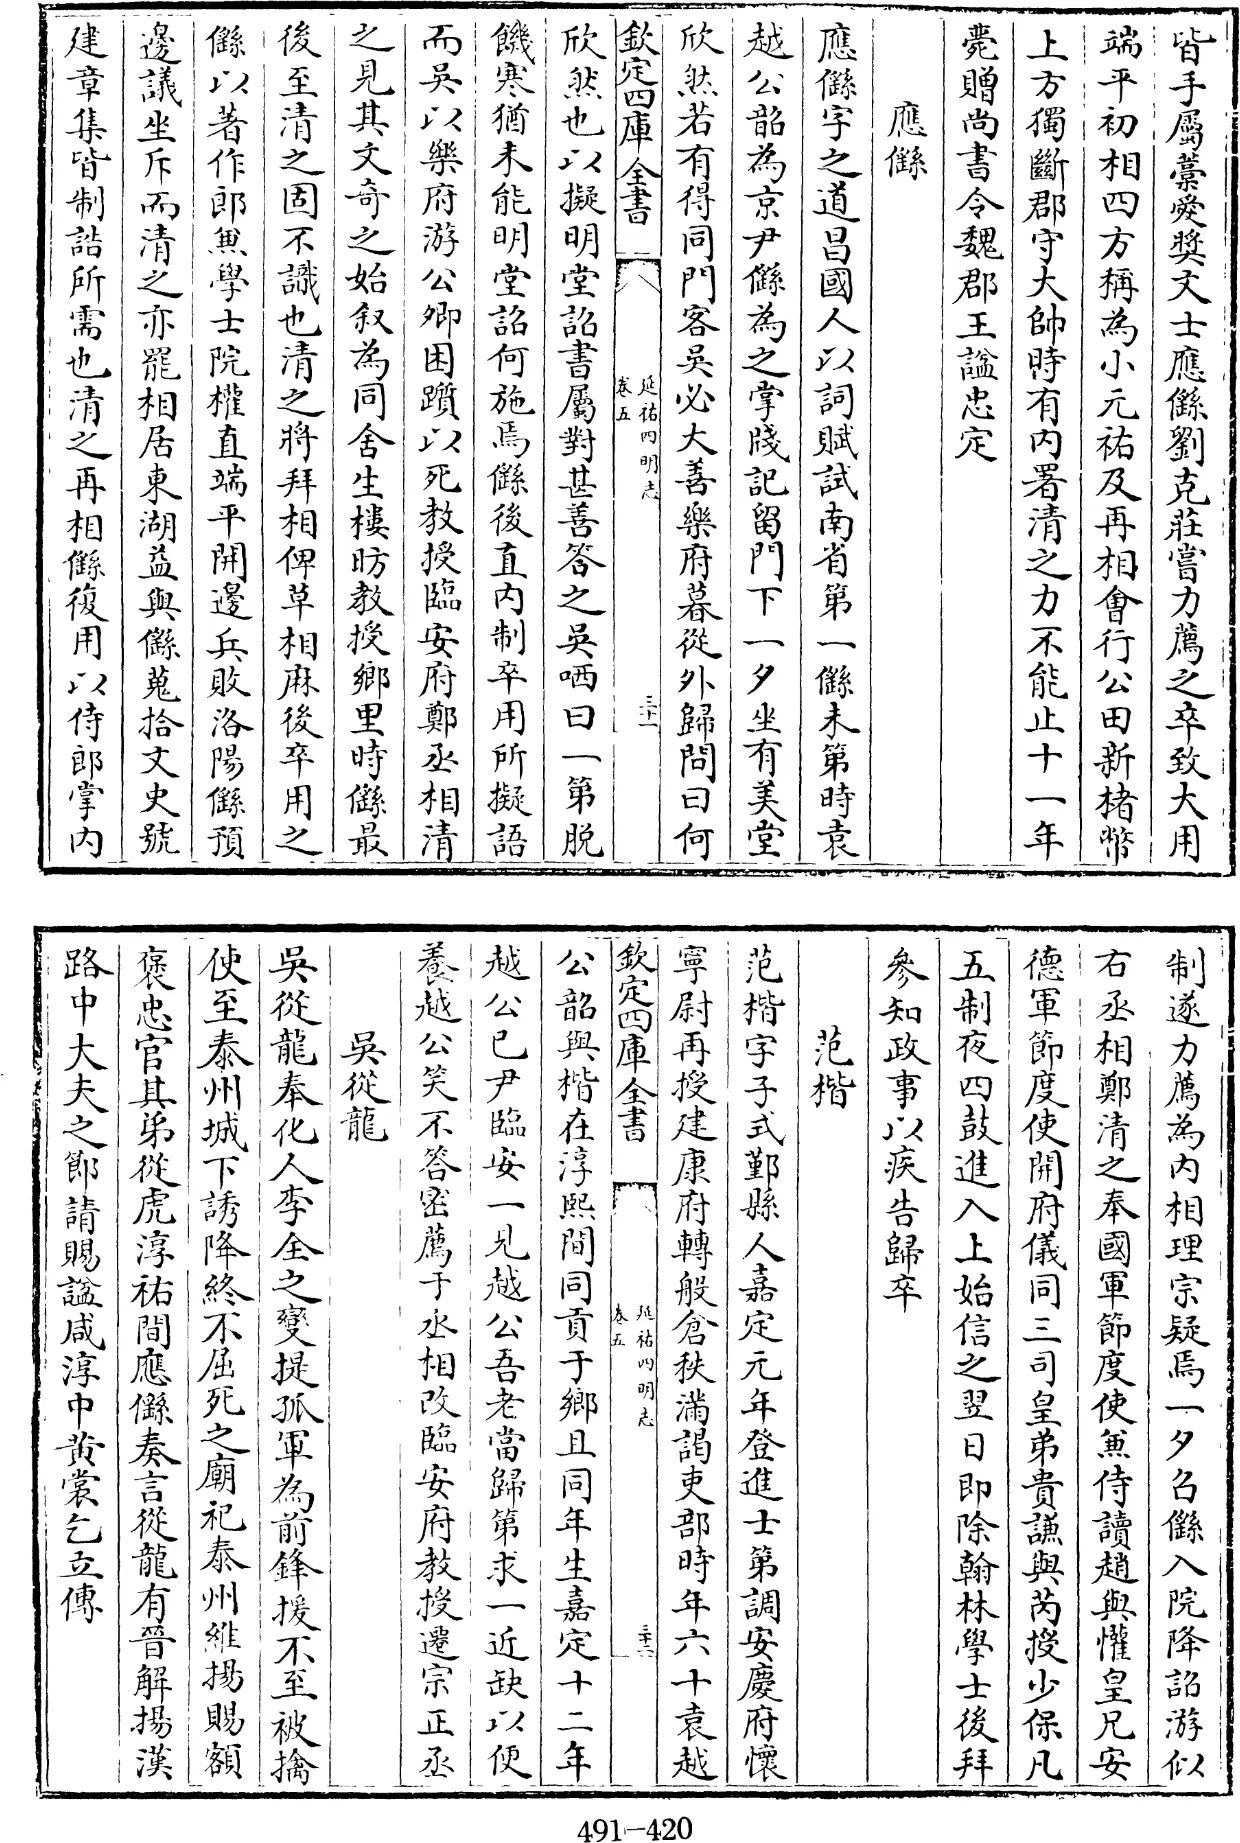 皆手屬藁愛奬文士應㒡劉克莊嘗力薦之卒致大用
端平初相四方稱為小元祐及再相㑹行公田新楮幣
上方獨斷郡守大帥時有内署清之力不能止十一年
薨贈尚書令魏郡王諡忠定
應㒡
應㒡字之道昌國人以詞賦試南省第一㒡未第時袁
越公韶為京尹㒡為之掌牋記留門下一夕坐有美堂
欣然若有得同門客吳必大善樂府暮從外歸問曰何
欽定四庫全書
延祐四明志
卷五
三十一
欣然也以擬明堂詔書屬對甚善答之吳哂曰一第脱
饑寒猶未能明堂詔何施焉㒡後直内制卒用所擬語
而吳以樂府游公卿困躓以死教授臨安府鄭丞相清
之見其文奇之始叙為同舍生樓昉教授鄉里時㒡最
後至清之固不識也清之將拜相俾草相麻後卒用之
㒡以著作郎兼學士院權直端平開邊兵敗洛陽㒡預
邊議坐斥而清之亦罷相居東湖益與㒡蒐拾文史號
建章集皆制誥所需也清之再相㒡復用以侍郎掌内
制遂力薦為内相理宗疑焉一夕召㒡入院降詔游似
右丞相鄭清之奉國軍節度使兼侍讀趙與懽皇兄安
德軍節度使開府儀同三司皇弟貴謙與芮授少保凡
五制夜四鼓進入上始信之翌日即除翰林學士後拜
參知政事以疾告歸卒
范楷
范楷字子式鄞縣人嘉定元年登進士第調安慶府懷
寧尉再授建康府轉般倉秩滿謁吏部時年六十袁越
欽定四庫全書
延祐四明志
卷五
三十二
公韶與楷在淳熙間同貢于鄉且同年生嘉定十二年
越公已尹臨安一見越公吾老當歸第求一近缺以便
養越公笑不答密薦于丞相改臨安府教授遷宗正丞
吳從龍
吳從龍奉化人李全之變提孤軍為前鋒援不至被擒
使至泰州城下誘降終不屈死之廟祀泰州維揚賜額
褒忠官其弟從虎淳祐間應㒡奏言從龍有晉解揚漢
路中大夫之節請賜諡咸淳中黄裳乞立傳
491-420